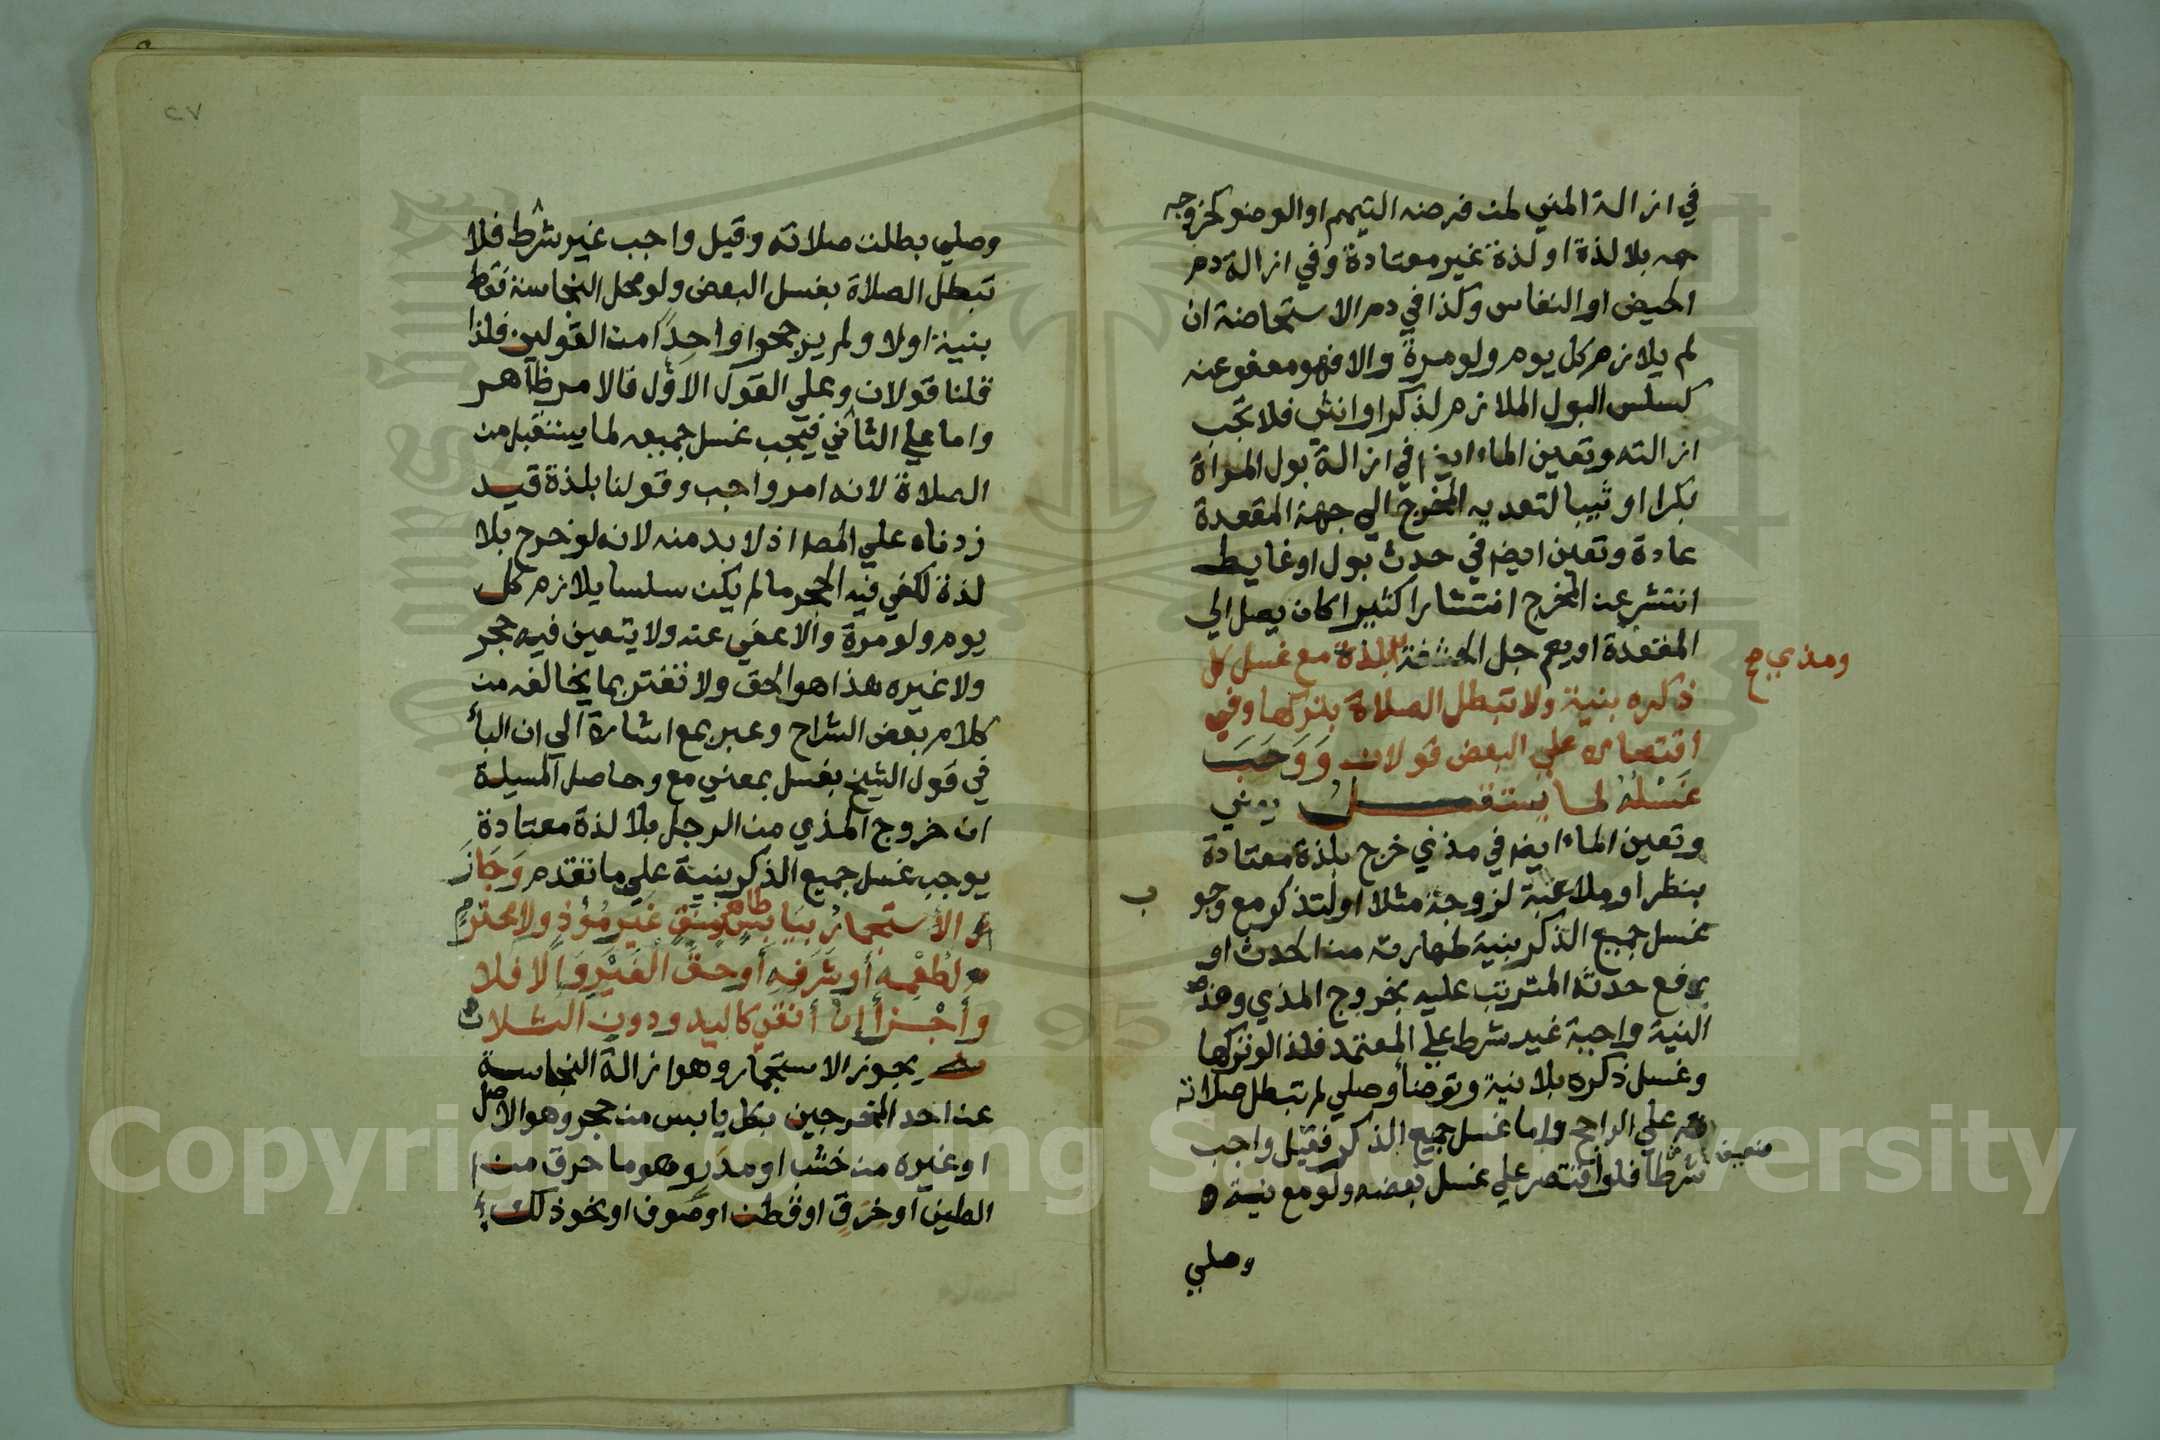 في ازالة المني لمن فرضه التيمم او الوضو كخروجه
جه بلا لذة او لذة غير معتادة وفي ازالة دم
الحيض او النفاس وكذا في دم الاستحاضة ان
لم يلازم كل يوم ولو مرة والا فهو معفو عنه
كسلس البول الملازم لذكر او انثي فلا تجب
ازالته وتعين الماء ايضا في ازالة بول المراة
بكرا او ثيبا لتعديه المخرج الي جهة المقعدة
عادة وتعين ايضا في حدث بول او غايط
انتشر عن المخرج انتشارا كثيرا كان يصل الي
المقعدة او يعم جل الحشفة بلذة مع غسل كل
ومذي
ذكره بنية ولا تبطل الصلاة بتركها وفي
اقتصاره علي البعض قولان وَوَجَبَ
غَسْلُهُ لما يستقبل يعني
وتعين الماء ايضا في مذي خرج بلذة معتادة
بنظر او ملاعبة لزوجة مثلا او لتذكر مع وجو
ب
غسل جميع الذكر بنية طهارته من الحدث او
رفع حدثه المترتب عليه بخروج المذي وهذه
النية واجبة غير شرط علي المعتمد فلذا لو تركها
وغسل ذكره بلا نية وتوضا وصلي لم تبطل صلاته
علي الراجح واما غسل جميع الذكر فقيل واجب
شرطا فلو اقتصر علي غسل بعضه ولو مع نية
وصلي
٢٧
وصلي بطلت صلاته وقيل واجب غير شرط فلا
تبطل الصلاة بغسل البعض ولو محل النجاسة فقط
بنية اولا ولم يرجحوا واحدًا من القولين فلذا
قلنا قولان وعلي القول الاول فالامر ظاهر
واما علي الثاني فيجب غسل جميعه لما يستقبل من
الصلاة لانه امر واجب وقولنا بلذة قيد
زدناه علي المصـ اذ لا بد منه لانه لو خرج بلا
لذة لكفي فيه الحجر ما لم يكن سلسا يلازم كل
يوم ولو مرة والا عفي عنه ولا يتعين فيه حجر
ولا غيره هذا هو الحق ولا تغتر بما يخالفه من
كلام بعض الشراح وعبر بمع اشارة الي ان البأ
في قول الشيخ بغسل بمعني مع وحاصل المسيلة
ان خروج المذي من الرجل بلا لذة معتادة
يوجب غسل جميع الذكر بنية علي ما تقدم وَجَازَ
الاستجمارُ بيَابسٍ طاهر مُنَقٍّ غَيرِ مُؤْذٍ ولا محترمٍ
لطُعْمِه أو شَرَفِهِ أو حقِّ الْغَيْرِ وَإِلَّا فلا
وأَجْزأ إِنْ أَنْقَي كاليد ودون الثلاث
يجوز الاستجمار وهو ازالة النجاسة
عن احد المخرجين بكل يابس من حجر وهو الاصل
او غيره من خشب او مدَر وهو ما حرق من
الطين او خرَقٍ او قطن او صوف او نحو ذلك